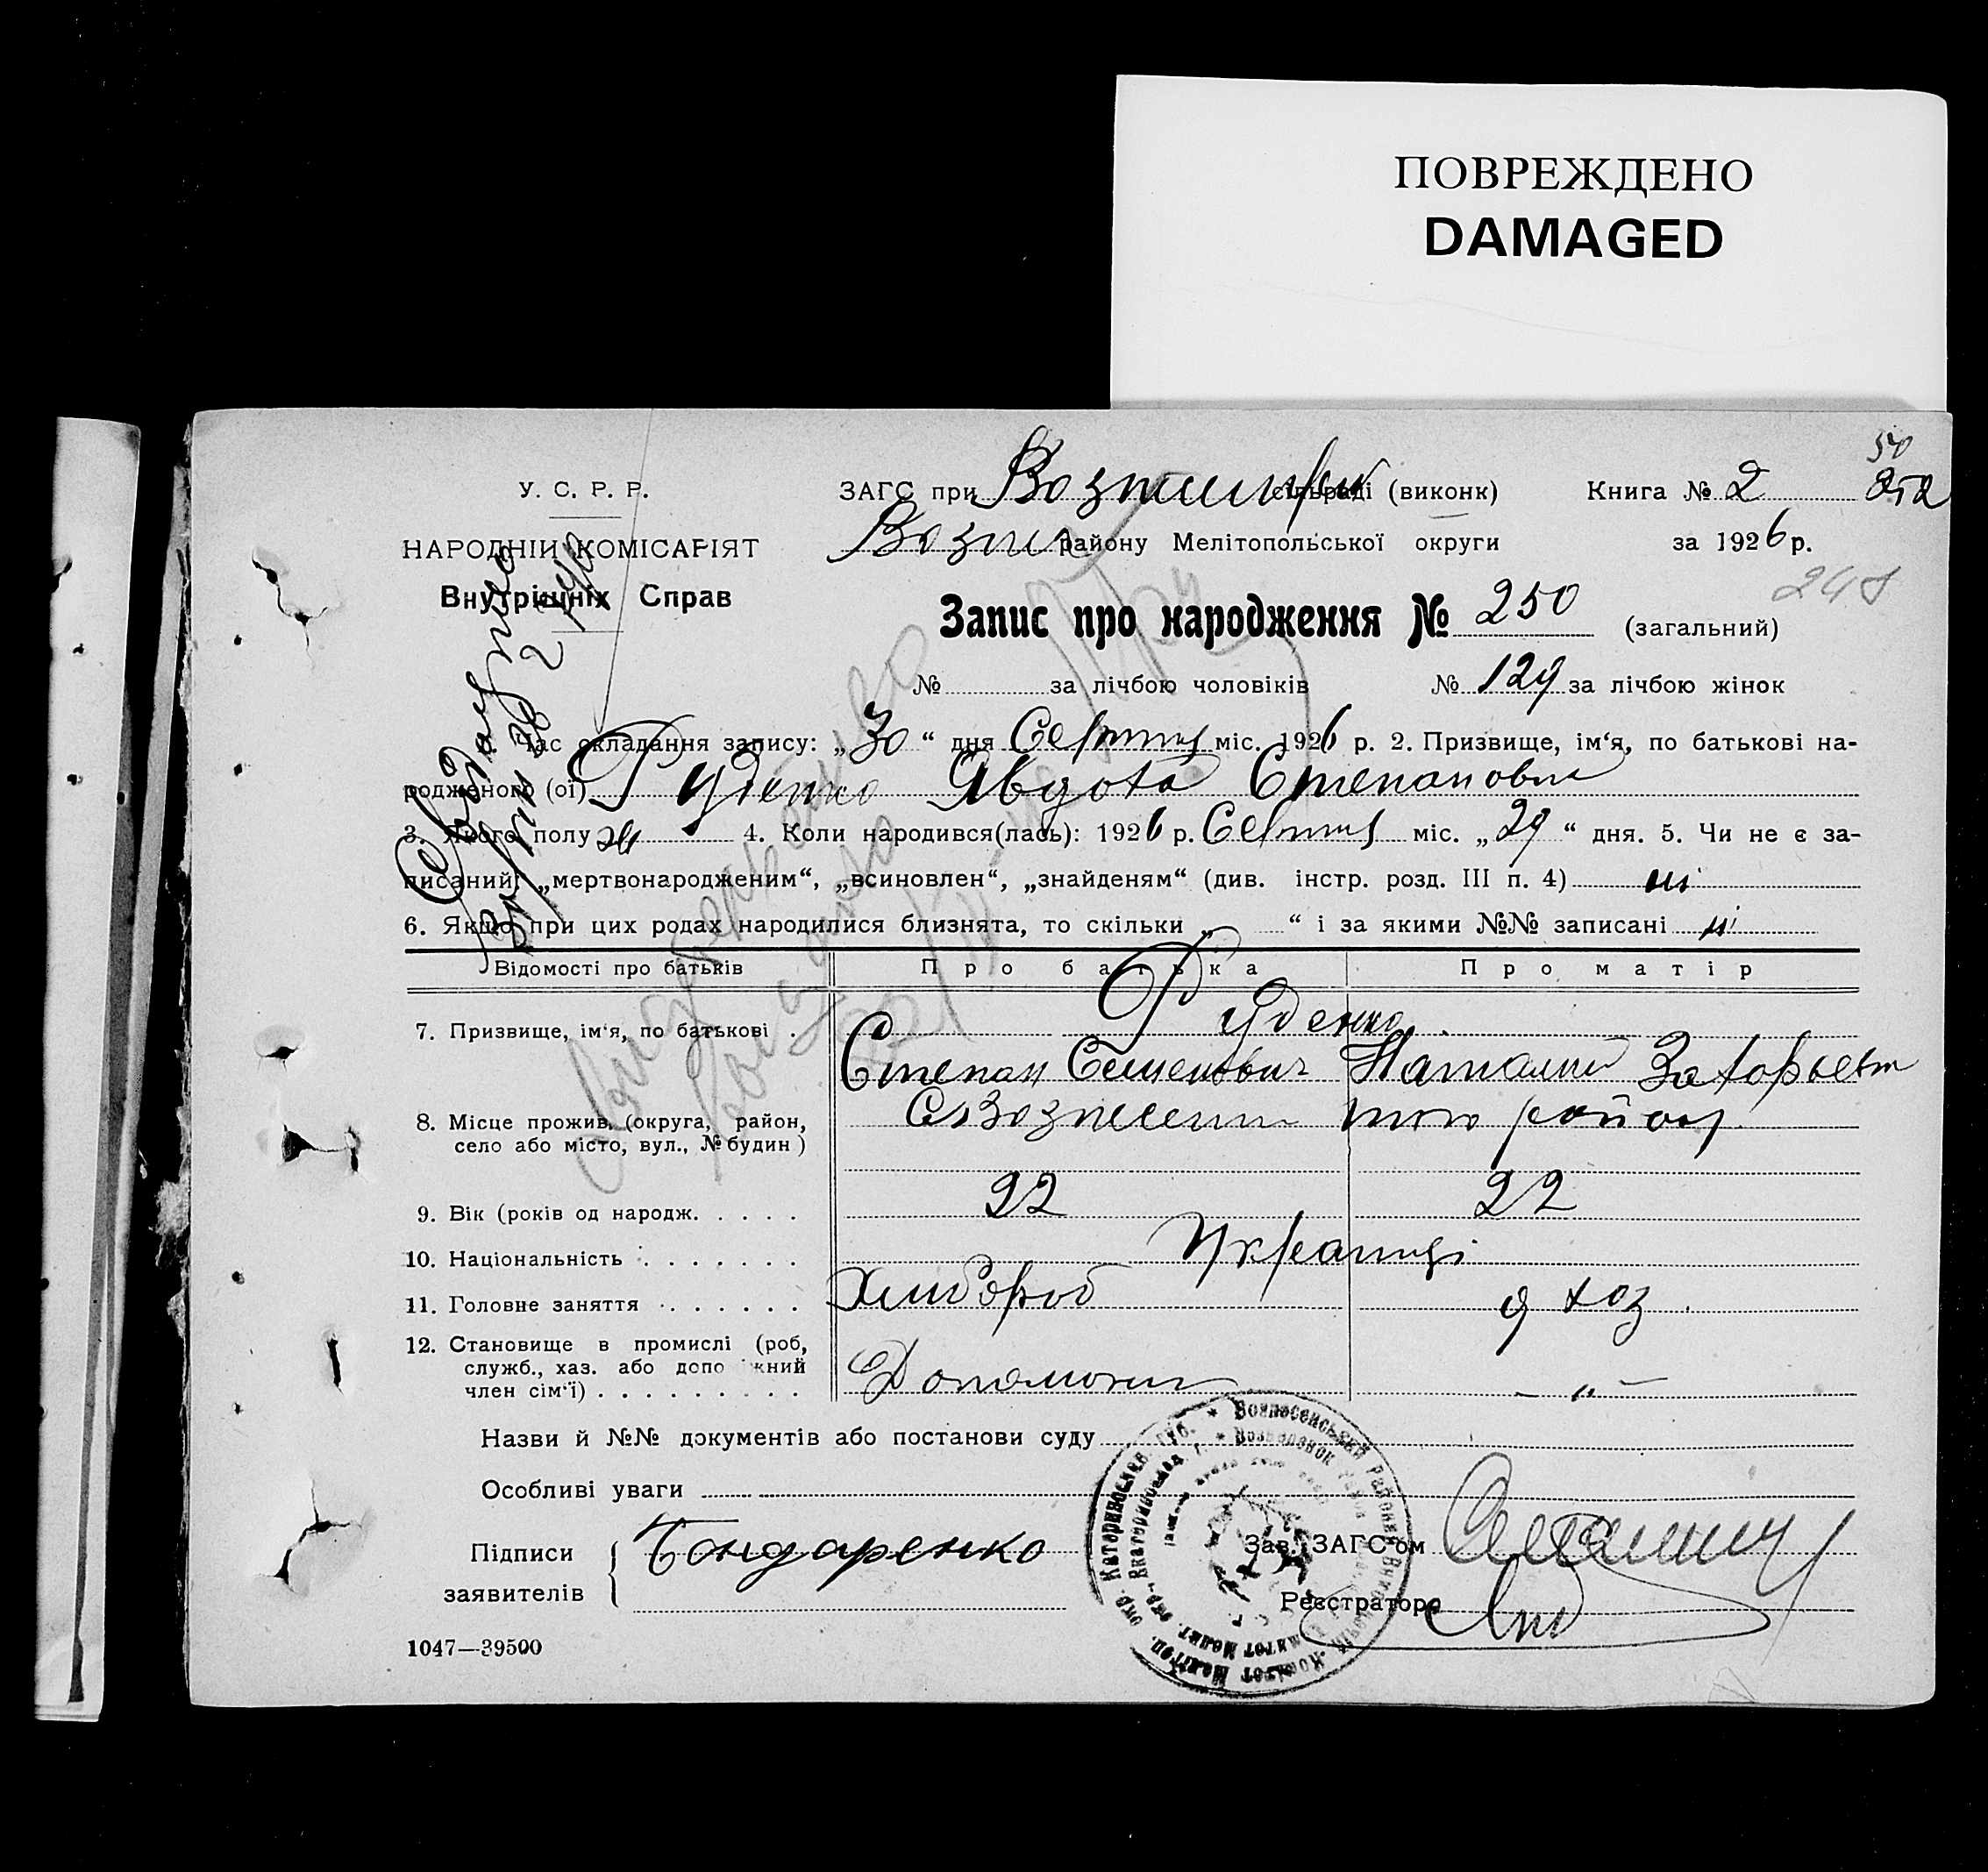 ПОВРЕЖДЕНО
DAMAGED
50
У. С. Р. Р.
ЗАГС при сільраді (виконк) Книга № 2 252
НАРОДНІЙ КОМІСАРІЯТ
Возне району Мелітопольської округи за 1926 р.
Внутрішніх Справ
248
Запис про народження № 250 (загальний)
№ за лічбою чоловіків № 129 за лічбою жінок
1. Час складання запису: „30“ дня міс. 1926 р. 2. Призвище, ім‘я, по батькові на-
родженого (ої) Руденко Явдота Степановна
3. Якого полу ж 4. Коли народився(лась): 1926 р. міс. „29“ дня. 5. Чи не є за-
писаний: „мертвонародженим“, „всиновлен“, „знайденям“ (див. інстр. розд. III п. 4) ні
6. Якщо при цих родах народилися близнята, то скільки „ “ і за якими №№ записані ні
Відомості про батьків Про батька Про матір
7. Призвище, ім‘я, по батькові . Руденко
Степан Семенович Наталия
8. Місце прожив. (округа, район,
село або місто, вул., № будин)
того району
9. Вік (років од народж. . . . . 22 22
10. Національність : . . . . . . . Українці
11. Головне заняття . . . . . . . Хлибороб д хоз.
12. Становище в промислі (роб,
служб., хаз. або допо жний
член сім‘ї) . . . . . . . . . . — „ —
Назви й №№ документів або постанови суду
Особливі уваги
Підписи
заявителів
Бондаренко
Зав. ЗАГС‘ом
Реєстраторо
1047—39500